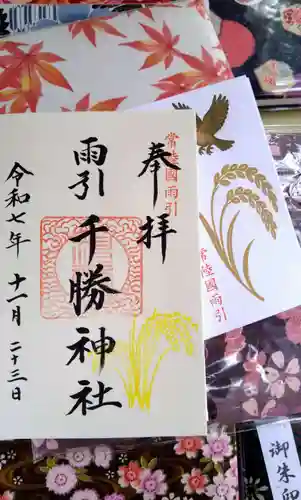 常陸國雨引
奉拝
雨引千勝神社
令和七年 十一月 二十三日
常陸國雨引
御朱